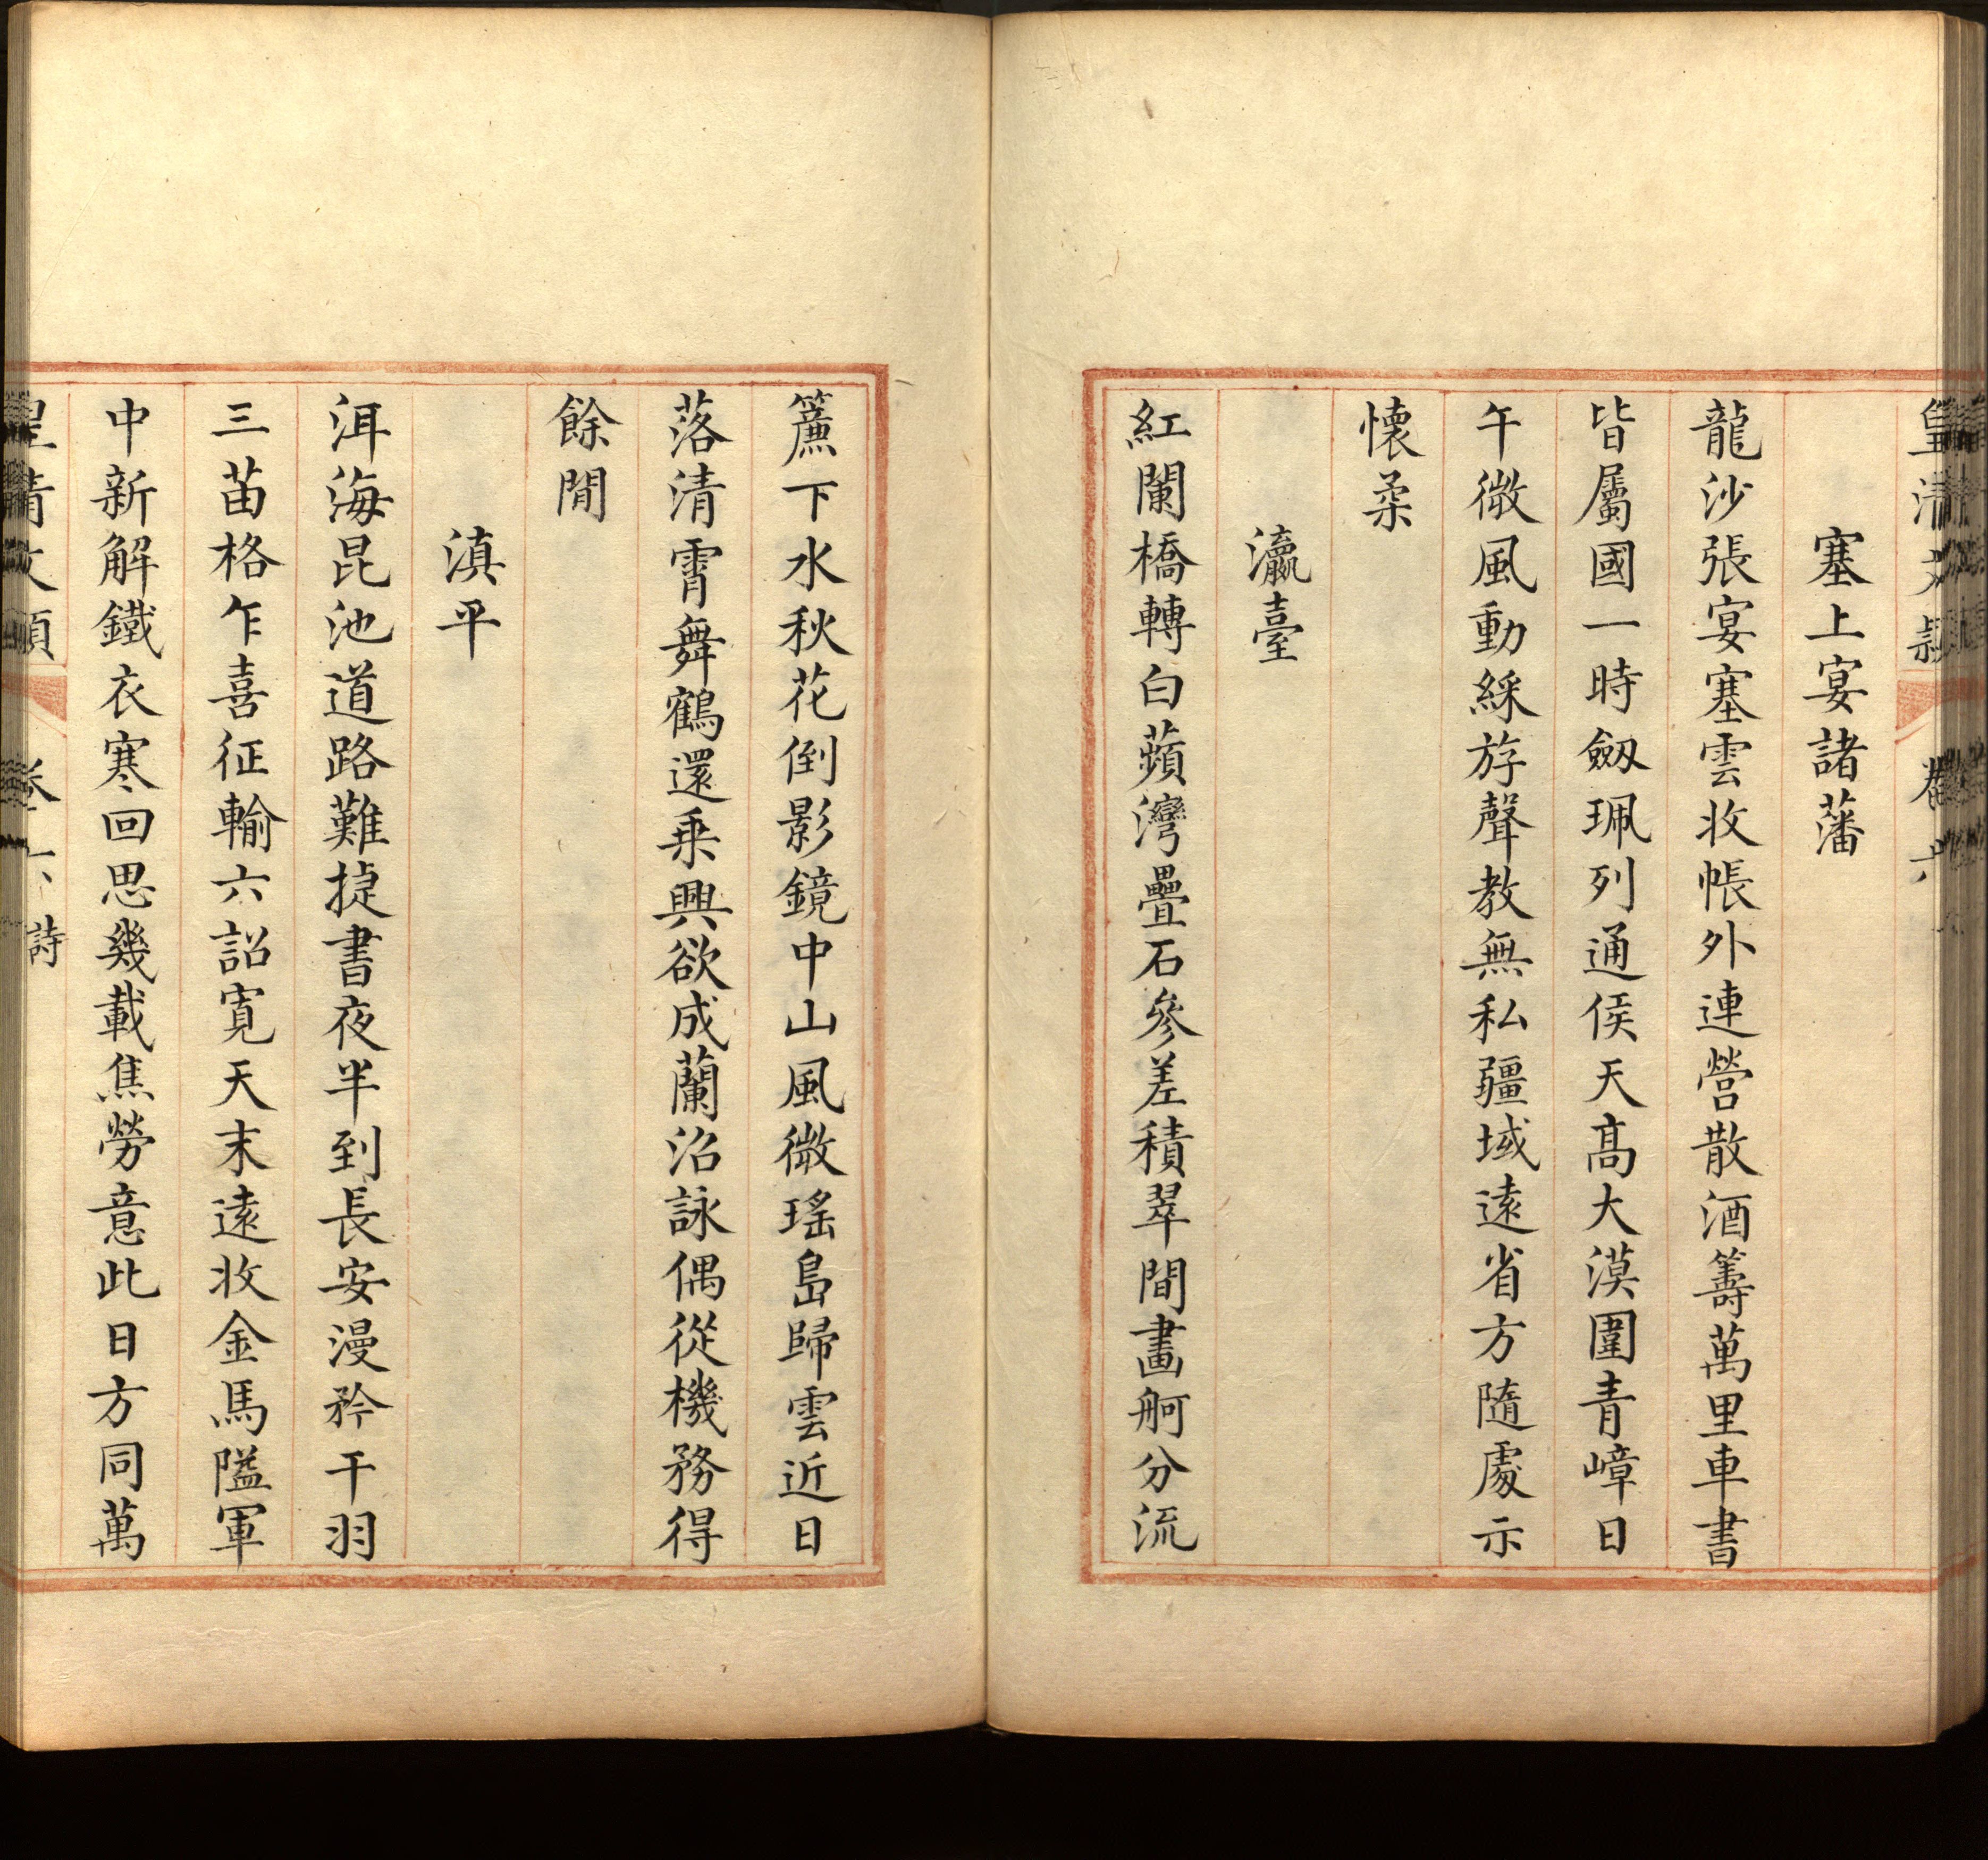 皇清文穎 卷六
塞上宴諸藩
龍沙張宴塞雲收帳外連營散酒籌萬里車書
皆屬國一時劔珮列通侯天高大漠圍青嶂日
午微風動綵斿聲教無私疆域遠省方隨處示
懷柔
瀛臺
紅闌橋轉白蘋灣疊石參差積翠間畫舸分流
簾下水秋花倒影鏡中山風微瑤島歸雲近日
落清霄舞鶴還乗興欲成蘭沼詠偶從機務得
餘閒
滇平
洱海昆池道路難捷書夜半到長安漫矜干羽
三苗格乍喜征輸六詔寬天末遠收金馬隘軍
中新解鐵衣寒回思幾載焦勞意此日方同萬
皇清文穎 卷六 詩